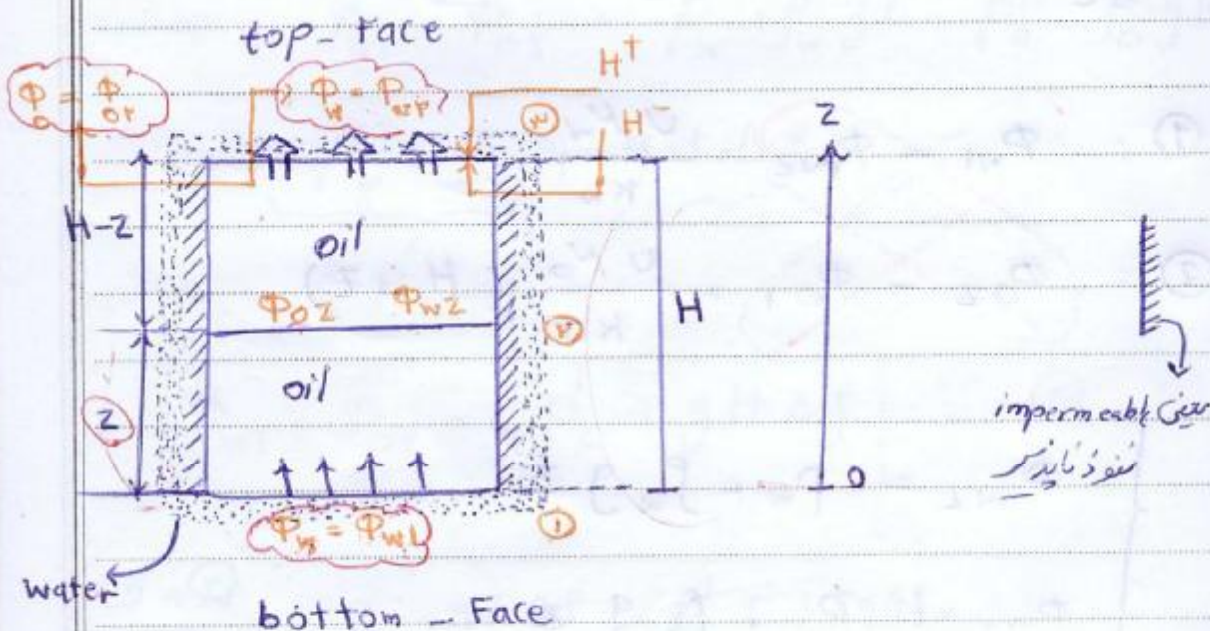 top_Face
Φo = Φor
Φw = Pwp
H+
H
w
z
H-z
oil
Φoz Φwz
H
oil
z
impermeable یعنی
نفوذ ناپذیر
o
Φw = Φw1
1
water
bottom _ Face